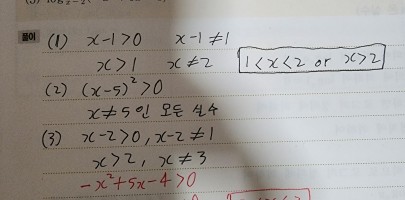 풀이 (1) x-1>0 x-1≠1
x>1 x≠2 1<x<2 or x>2
(2) (x-5)²>0
x≠5인 모든 실수
(3) x-2>0, x-2≠1
x>2, x≠3
-x²+5x-4>0